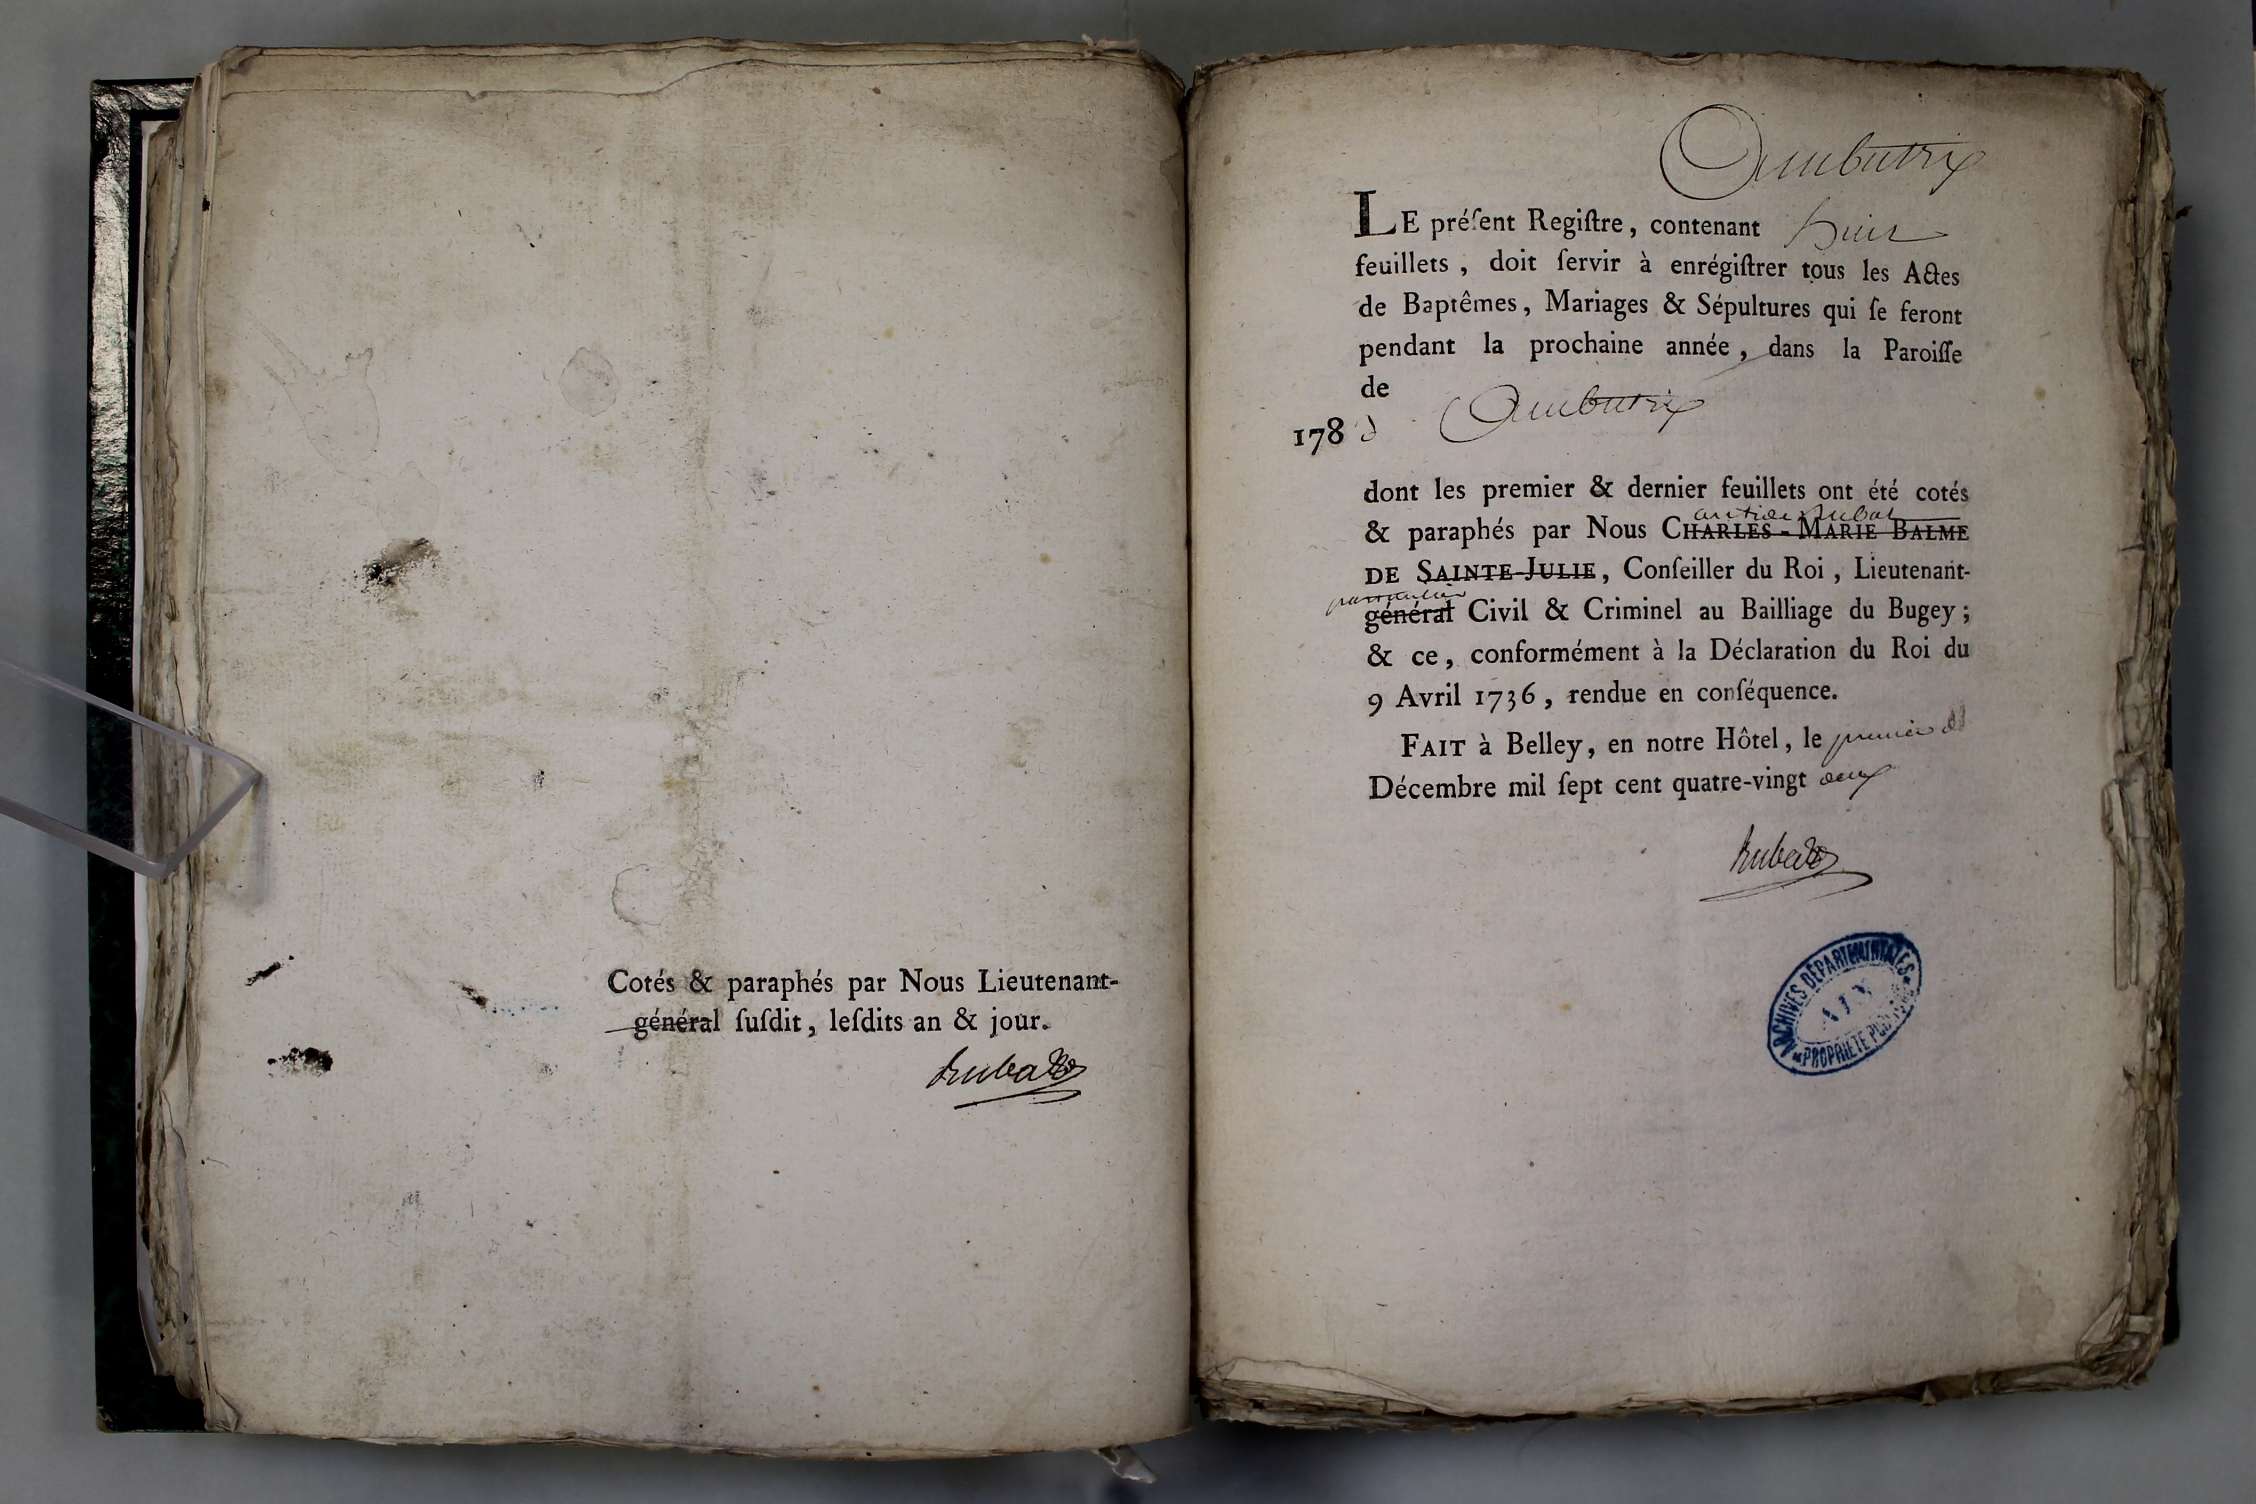 Cotés & paraphés par Nous Lieutenant-
général ſuſdit, leſdits an & jour.
Rubat
Ambutrix
LE préſent Regiſtre, contenant huit
feuillets, doit ſervir à enrégiſtrer tous les Actes
de Baptêmes, Mariages & Sépultures qui ſe feront
pendant la prochaine année, dans la Paroiſſe
de
Ambutrix
178
dont les premier & dernier feuillets ont été cotés
Rubat
& paraphés par Nous CHARLES-MARIE BALME
DE SAINTE-JULIE, Conſeiller du Roi, Lieutenant-
particulier
général Civil & Criminel au Bailliage du Bugey;
& ce, conformément à la Déclaration du Roi du
9 Avril 1736, rendue en conſéquence.
FAIT à Belley, en notre Hôtel, le premier
Décembre mil ſept cent quatre-vingt deux
Rubat
ARCHIVES DÉPARTEMENTALES
AIN
PROPRIÉTÉ PUBLIQUE